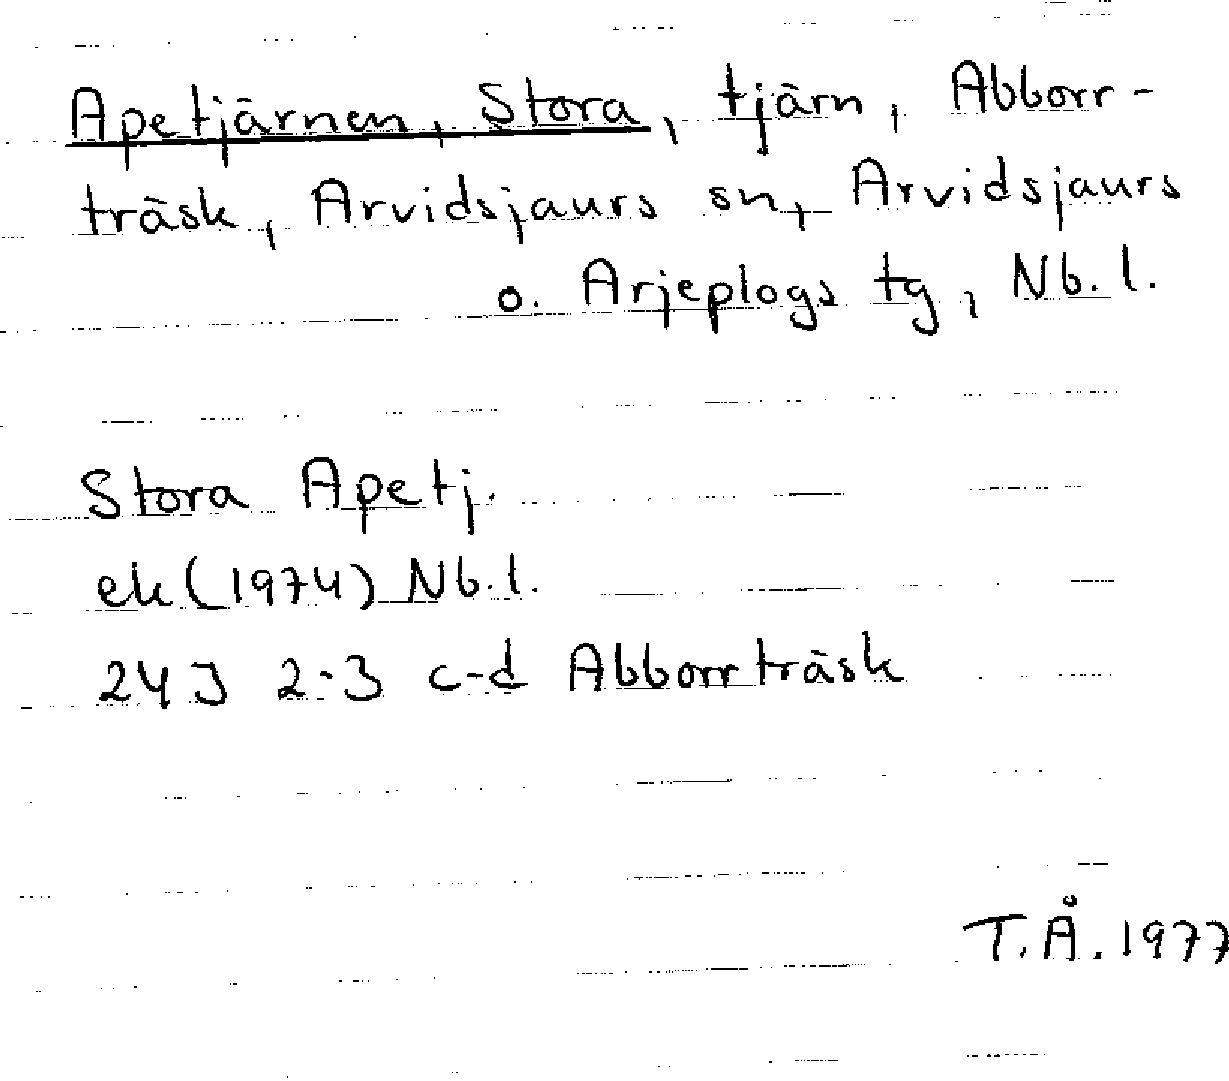 Apetjärnen, Stora, tjärn, Abborr-
träsk, Arvidsjaurs sn, Arvidsjaurs
o. Arjeplogs tg, Nb. l.
Stora Apetj.
ek (1974) Nb. l.
24J 2-3 c-d Abborrträsk
T. Å. 1977